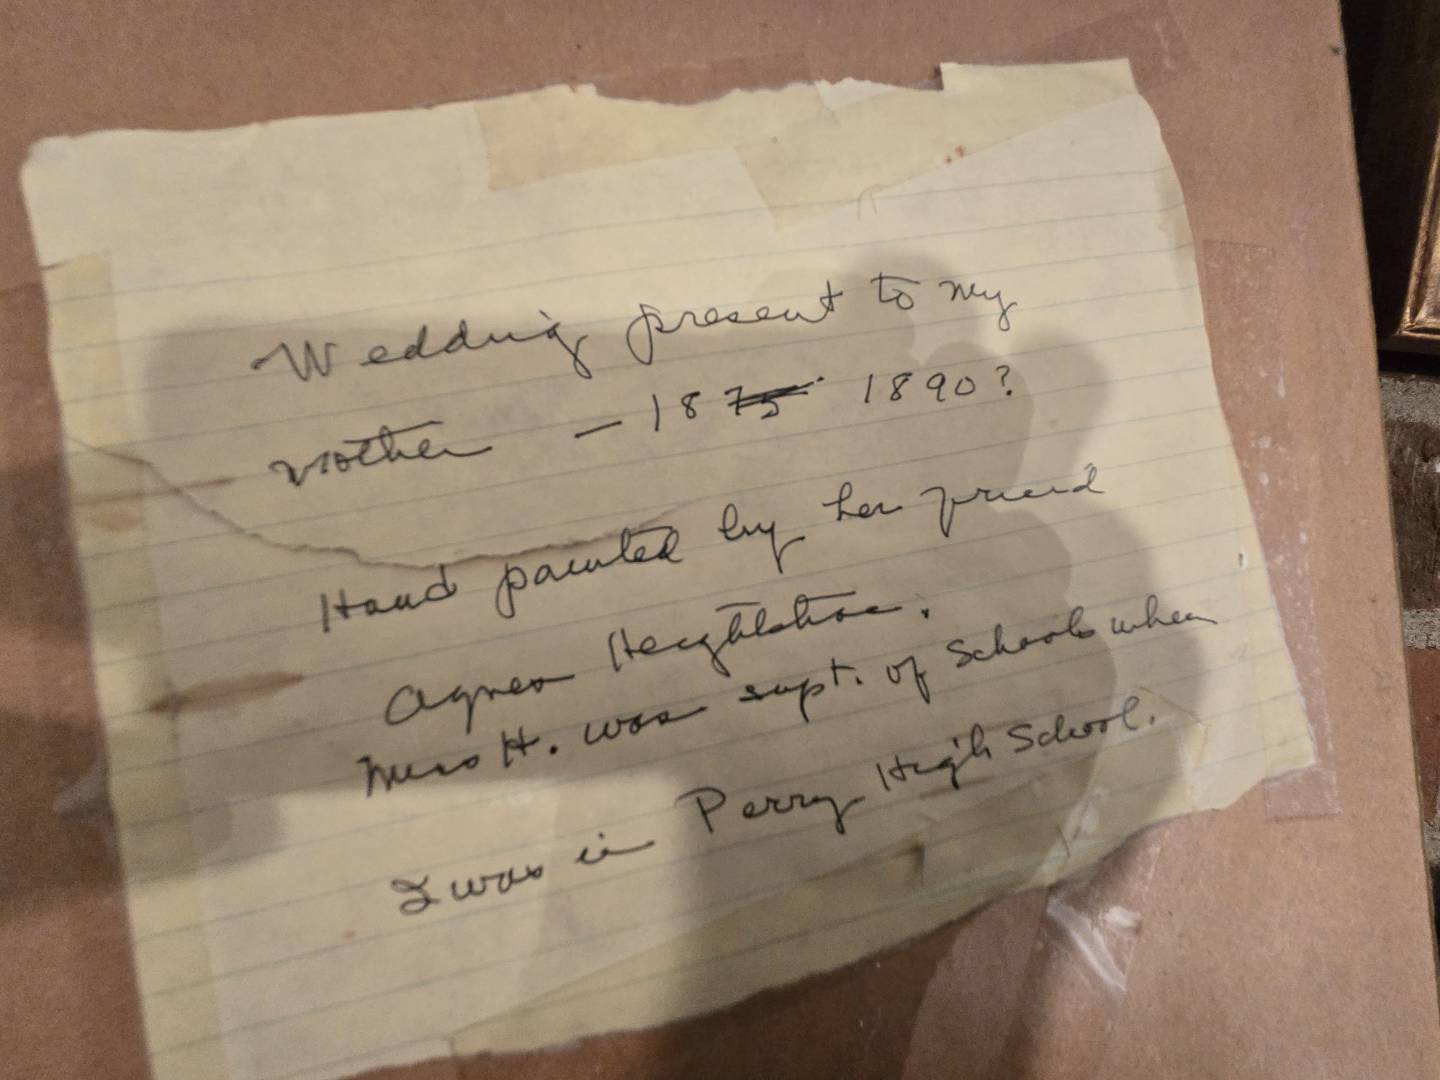 Wedding present to my
Mother — 1875 1890?
Hand painted by her friend
Agnes Heightshoe.
Miss H. was supt. of Schools when
I was in Perry High School.